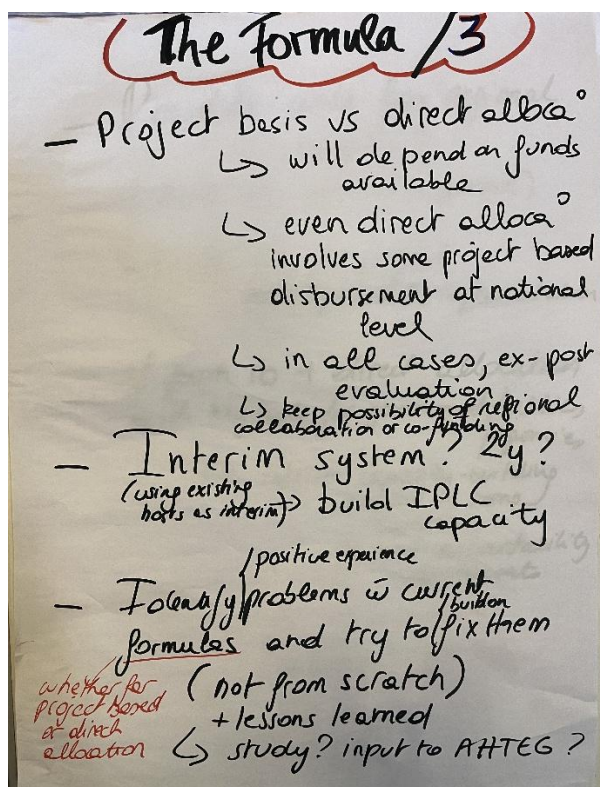 The Formula /3
- Project basis vs direct alloca°
↳ will depend on funds
available
↳ even direct alloca°
involves some project based
disbursement at national
level
↳ in all cases, ex-post
evaluation
↳ keep possibility of regional
collaboration or co-funding
- Interim system? 2y?
(using existing
hosts as interim)
→ build IPLC
capacity
/positive experience
- Identify/problems w current
/build on
formulas and try to/fix them
whether for
project based
or direct
allocation
(not from scratch)
+ lessons learned
↳ study? input to AHTEG?